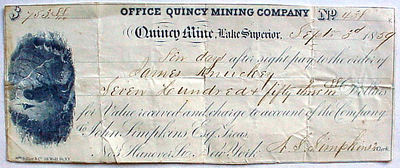 OFFICE QUINCY MINING COMPANY
$ 753 Nº
Quincy Mine, Lake Superior, Sept 3d 1859
Ten days after sight pay to the order of
James
Seven Hundred & fifty three Dollars
for Value received and charge to account of the Company
To John Simpkins Esq. Treas.
New Hanover St New York. Simpkins